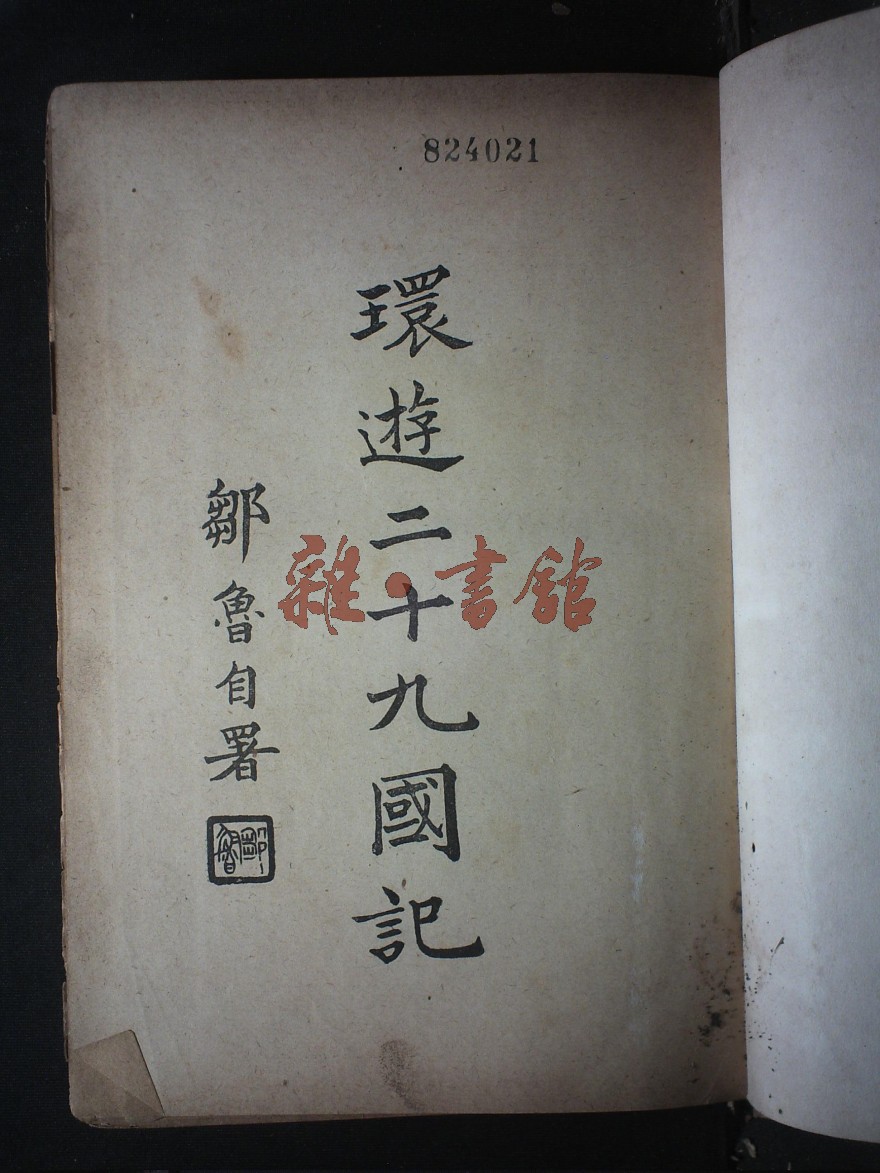 824021
環遊二十九國記
鄒魯自署
鄒魯
雜·書館